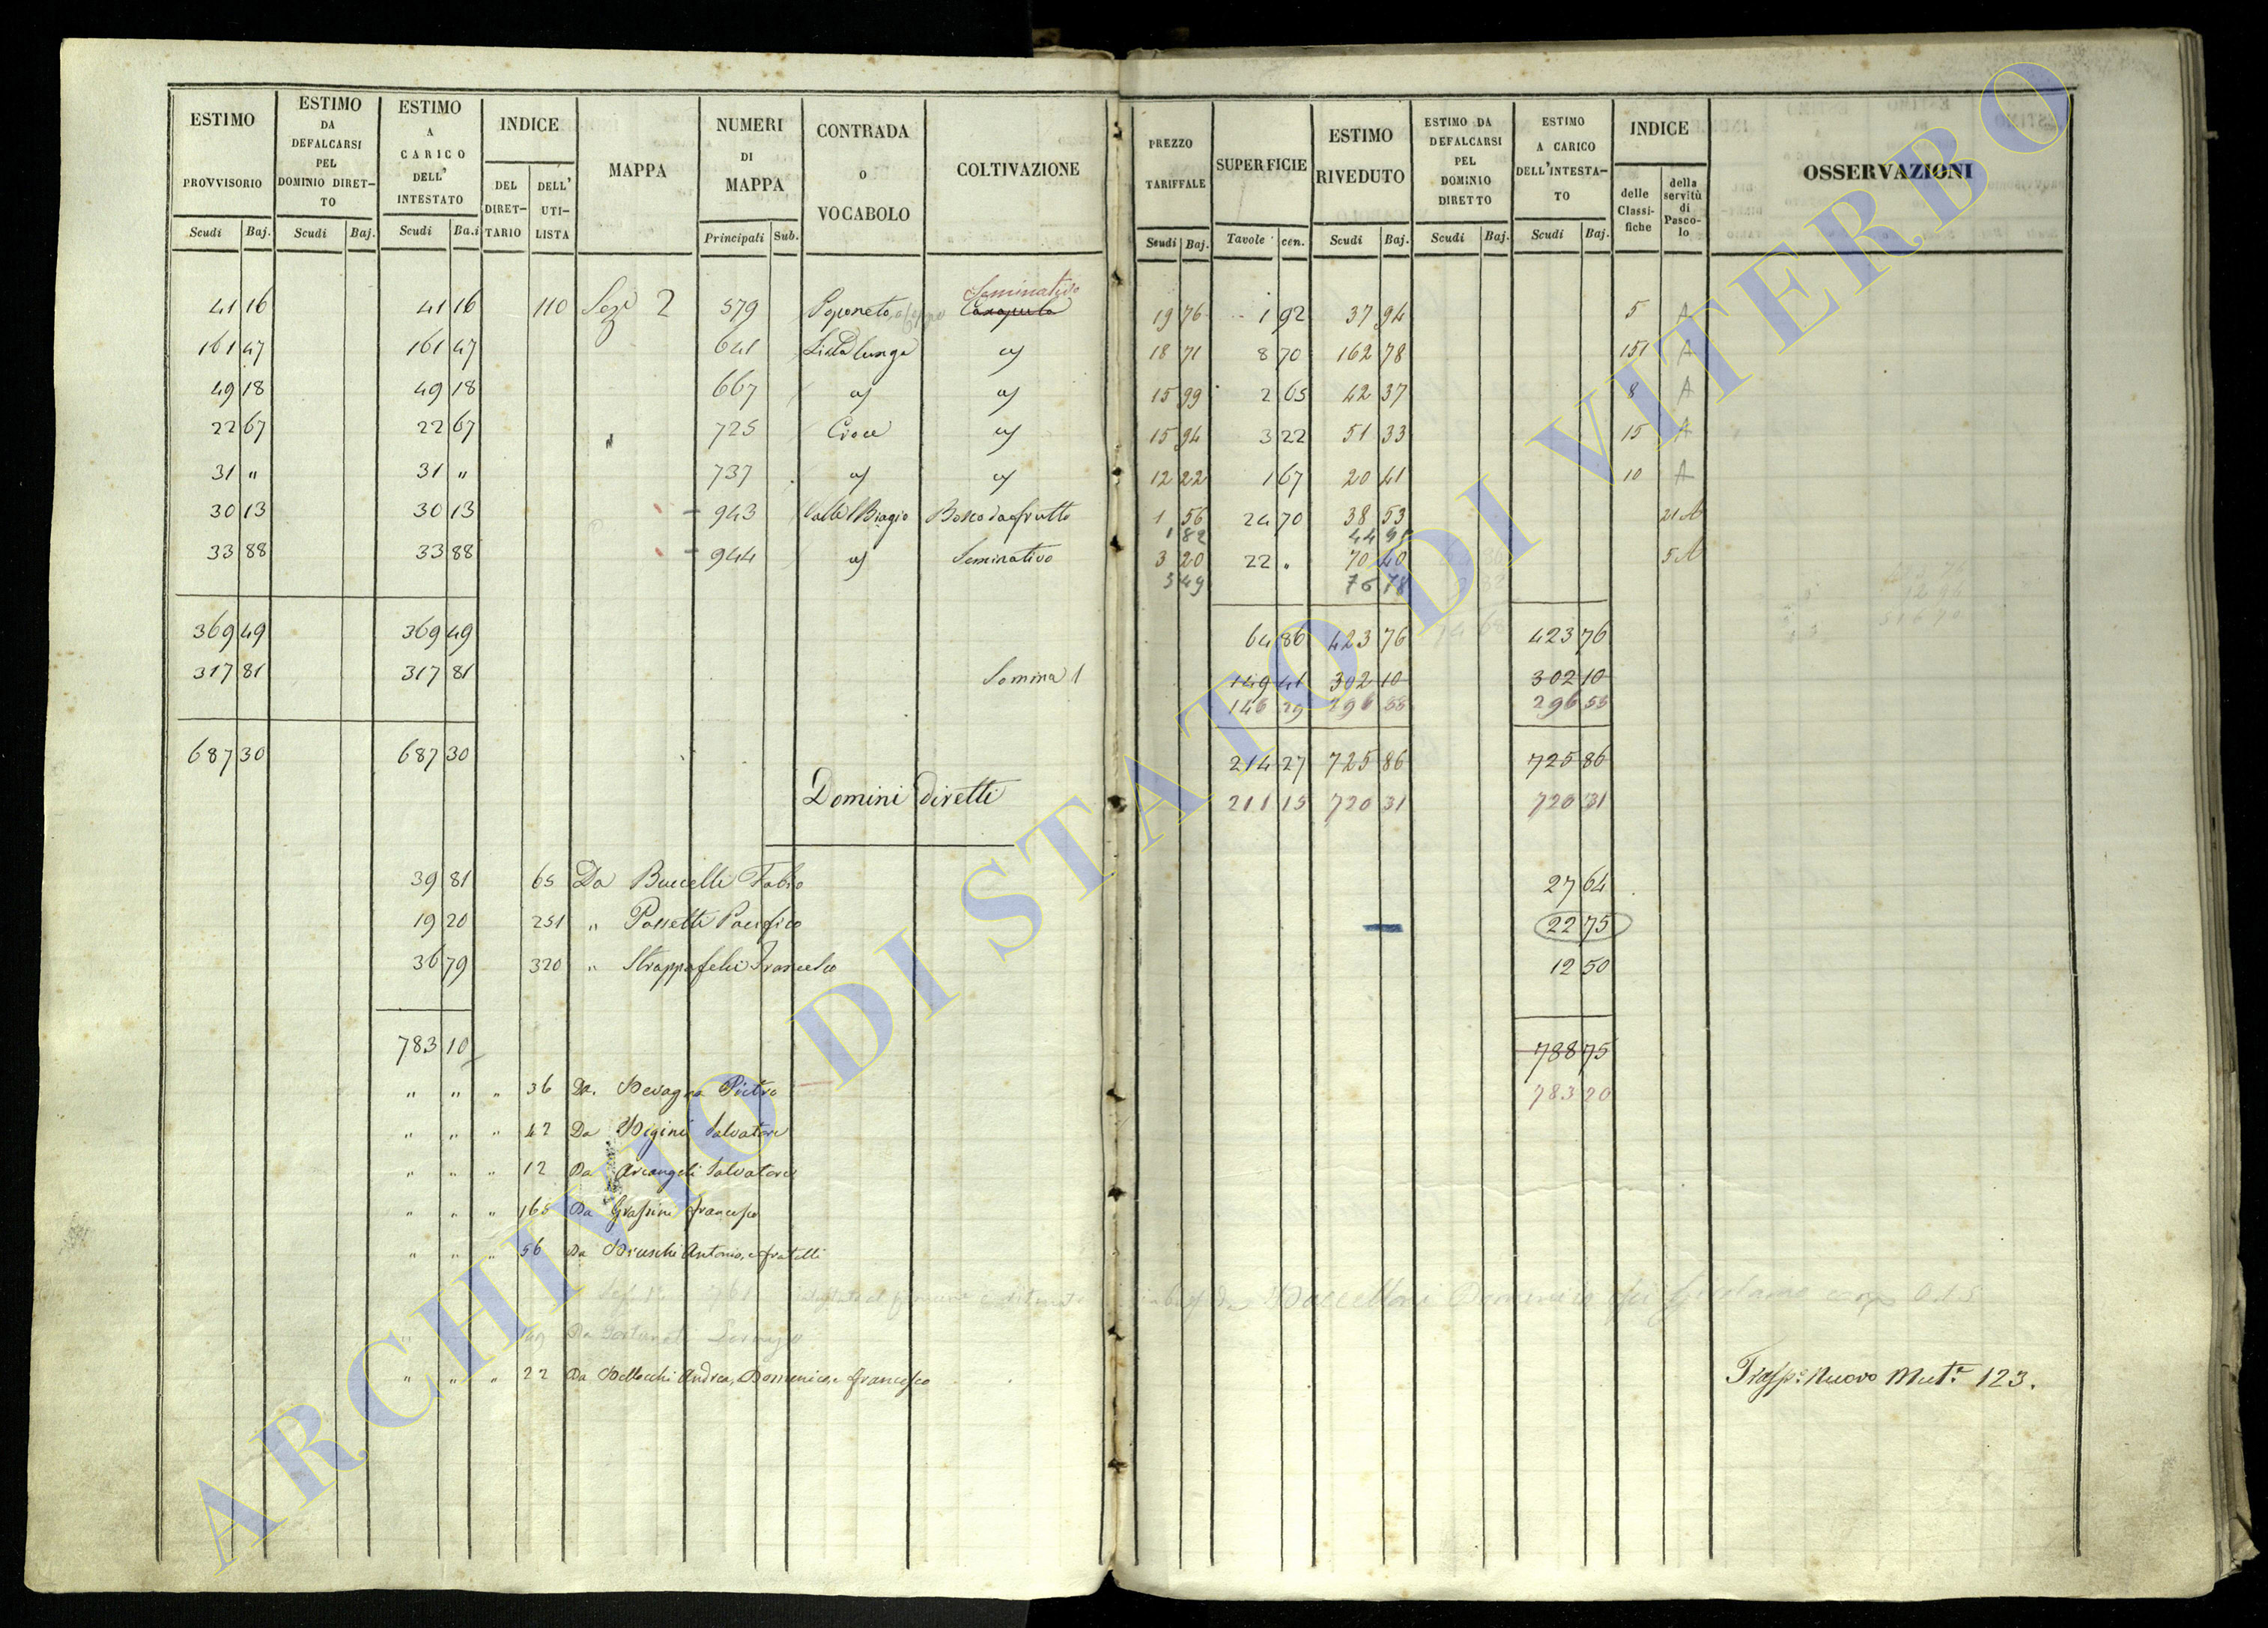 ESTIMO PROVVISORIO Scudi Baj.
ESTIMO DA DEFALCARSI PEL DOMINIO DIRET- TO Scudi Baj.
ESTIMO A CARICO DELL' INTESTATO Scudi Ba.i
INDICE DEL DIRET- TARIO DELL' UTI- LISTA
MAPPA
NUMERI DI MAPPA Principali Sub.
CONTRADA O VOCABOLO
COLTIVAZIONE
PREZZO TARIFFALE Scudi Baj.
SUPERFICIE Tavole cen.
ESTIMO RIVEDUTO Scudi Baj.
ESTIMO DA DEFALCARSI PEL DOMINIO DIRETTO Scudi Baj.
ESTIMO A CARICO DELL'INTESTA- TO Scudi Baj.
INDICE delle Classi- fiche della servitù di Pasco- lo
OSSERVAZIONI
Seminativo
41 16 41 16 110 Sez 2 579 19 76 1 92 37 94 5 A
161 47 161 47 641 Lista lunga a/ 18 71 8 70 162 78 151 A
49 18 49 18 667 a/ a/ 15 99 2 65 42 37 8 A
22 67 22 67 725 Croce a/ 15 94 3 22 51 33 15 A
31 " 31 " 737 a/ a/ 12 22 1 67 20 41 10 A
30 13 30 13 943 Valle Biagio Bosco da frutto 1 56 24 70 38 53 21 A
1 82 44 95
33 88 33 88 944 a/ Seminativo 3 20 22 " 70 40 5 A
3 49 76 78
369 49 369 49 64 86 423 76 423 76
317 81 317 81 Somma 1 149 41 302 10 302 10
146 29 296 55 296 55
687 30 687 30 214 27 725 86 725 86
Domini diretti 211 15 720 31 720 31
39 81 65 Da Buccelli Fabio 27 64
19 20 251 " Possetti Pacifico 22 75
36 79 320 " Strappafelci Francesco 12 50
783 10 788 75
" " " 36 Da Bevagna Pietro 783 20
" " " 42 Da Bigini Salvatore
" " " 12 Da Arcangeli Salvatore
" " " 165 Da Grassini Francesco
" " " 56 Da Bruschi Antonio, e fratelli
" " " 22 Da Bellocchi Andrea, Domenico, e Francesco Trasp:o Nuovo Mut:a 123.
ARCHIVIO DI STATO DI VITERBO